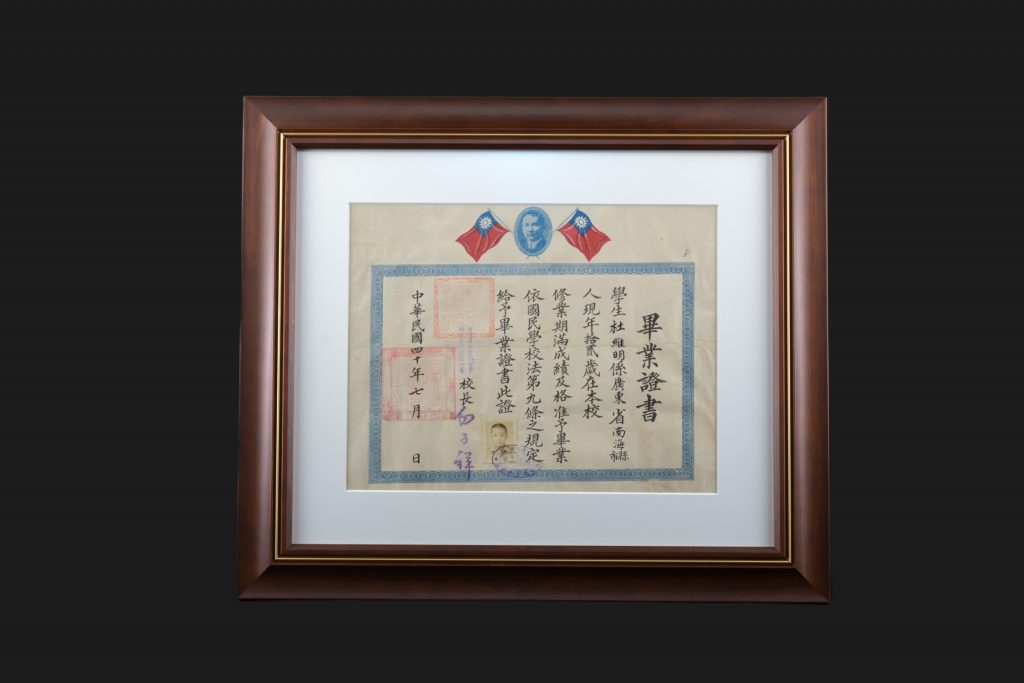 畢業證書
學生杜維明係廣東省南海縣
人現年拾貳歲在本校
修業期滿成績及格准予畢業
依國民學校法第九條之規定
給予畢業證書此證
校長
中華民國四十年七月 日